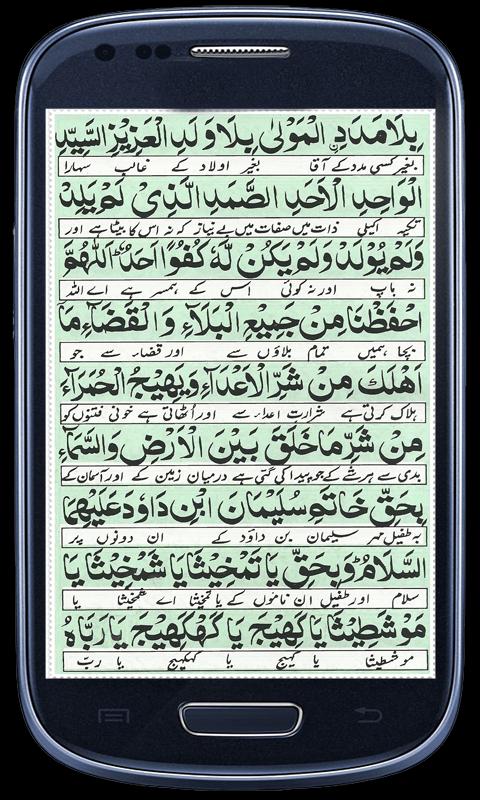 بِلَا مَدَدِ الْمَوْلٰی بِلَا وَلَدِ الْعَزِيْزِ السَّيِّدِ
بغیر کسی مدد کے آقا بغیر اولاد کے غالب سہارا
الْوَاحِدِ الْاَحَدِ الصَّمَدِ الَّذِیْ لَمْ يَلِدْ
تکیہ اکیلی ذات میں صفات میں بے نیاز کہ نہ اس کا بیٹا ہے اور
وَلَمْ يُوْلَدْ وَلَمْ يَكُنْ لَّهٗ كُفُوًا اَحَدٌ اَللّٰهُمَّ
نہ باپ اور نہ کوئی اس کے ہمسر ہے اے اللہ
احْفَظْنَا مِنْ جَمِيْعِ الْبَلَآءِ وَالْقَضَآءِ مَا
بچا ہمیں تمام بلاؤں سے اور قضاء سے جو
اَهْلَكَ مِنْ شَرِّ الْاَعْدَآءِ وَيَهِيْجُ الْحُمَرَآءِ
ہلاک کرتی ہے شرارت اعداء سے اور اُٹھاتی ہے خونی فتنوں کو
مِنْ شَرِّ مَا خَلَقَ بَيْنَ الْاَرْضِ وَالسَّمَآءِ
بدی سے ہر شے کے جو پیدا کی گئی ہے درمیان زمین کے اور آسمان کے
بِحَقِّ خَاتَمِ سُلَيْمَانَ ابْنِ دَاوٗدَ عَلَيْهِمَا
بہ طفیل مہر سلیمان بن داؤد کے ان دونوں پر
السَّلَامُ وَبِحَقِّ يَا تَمْخِيْثَا يَا شَمْخِيْثَا يَا
سلام اور طفیل ان ناموں کے یا تمخیثا اے شمخیثا یا
مَوْشَطِيْثَا يَا كَهِيْجُ يَا كَهْكَهِيْجُ يَا رَبَّاهُ
موشطیثا یا کہیج یا کہکہیج یا ربّ